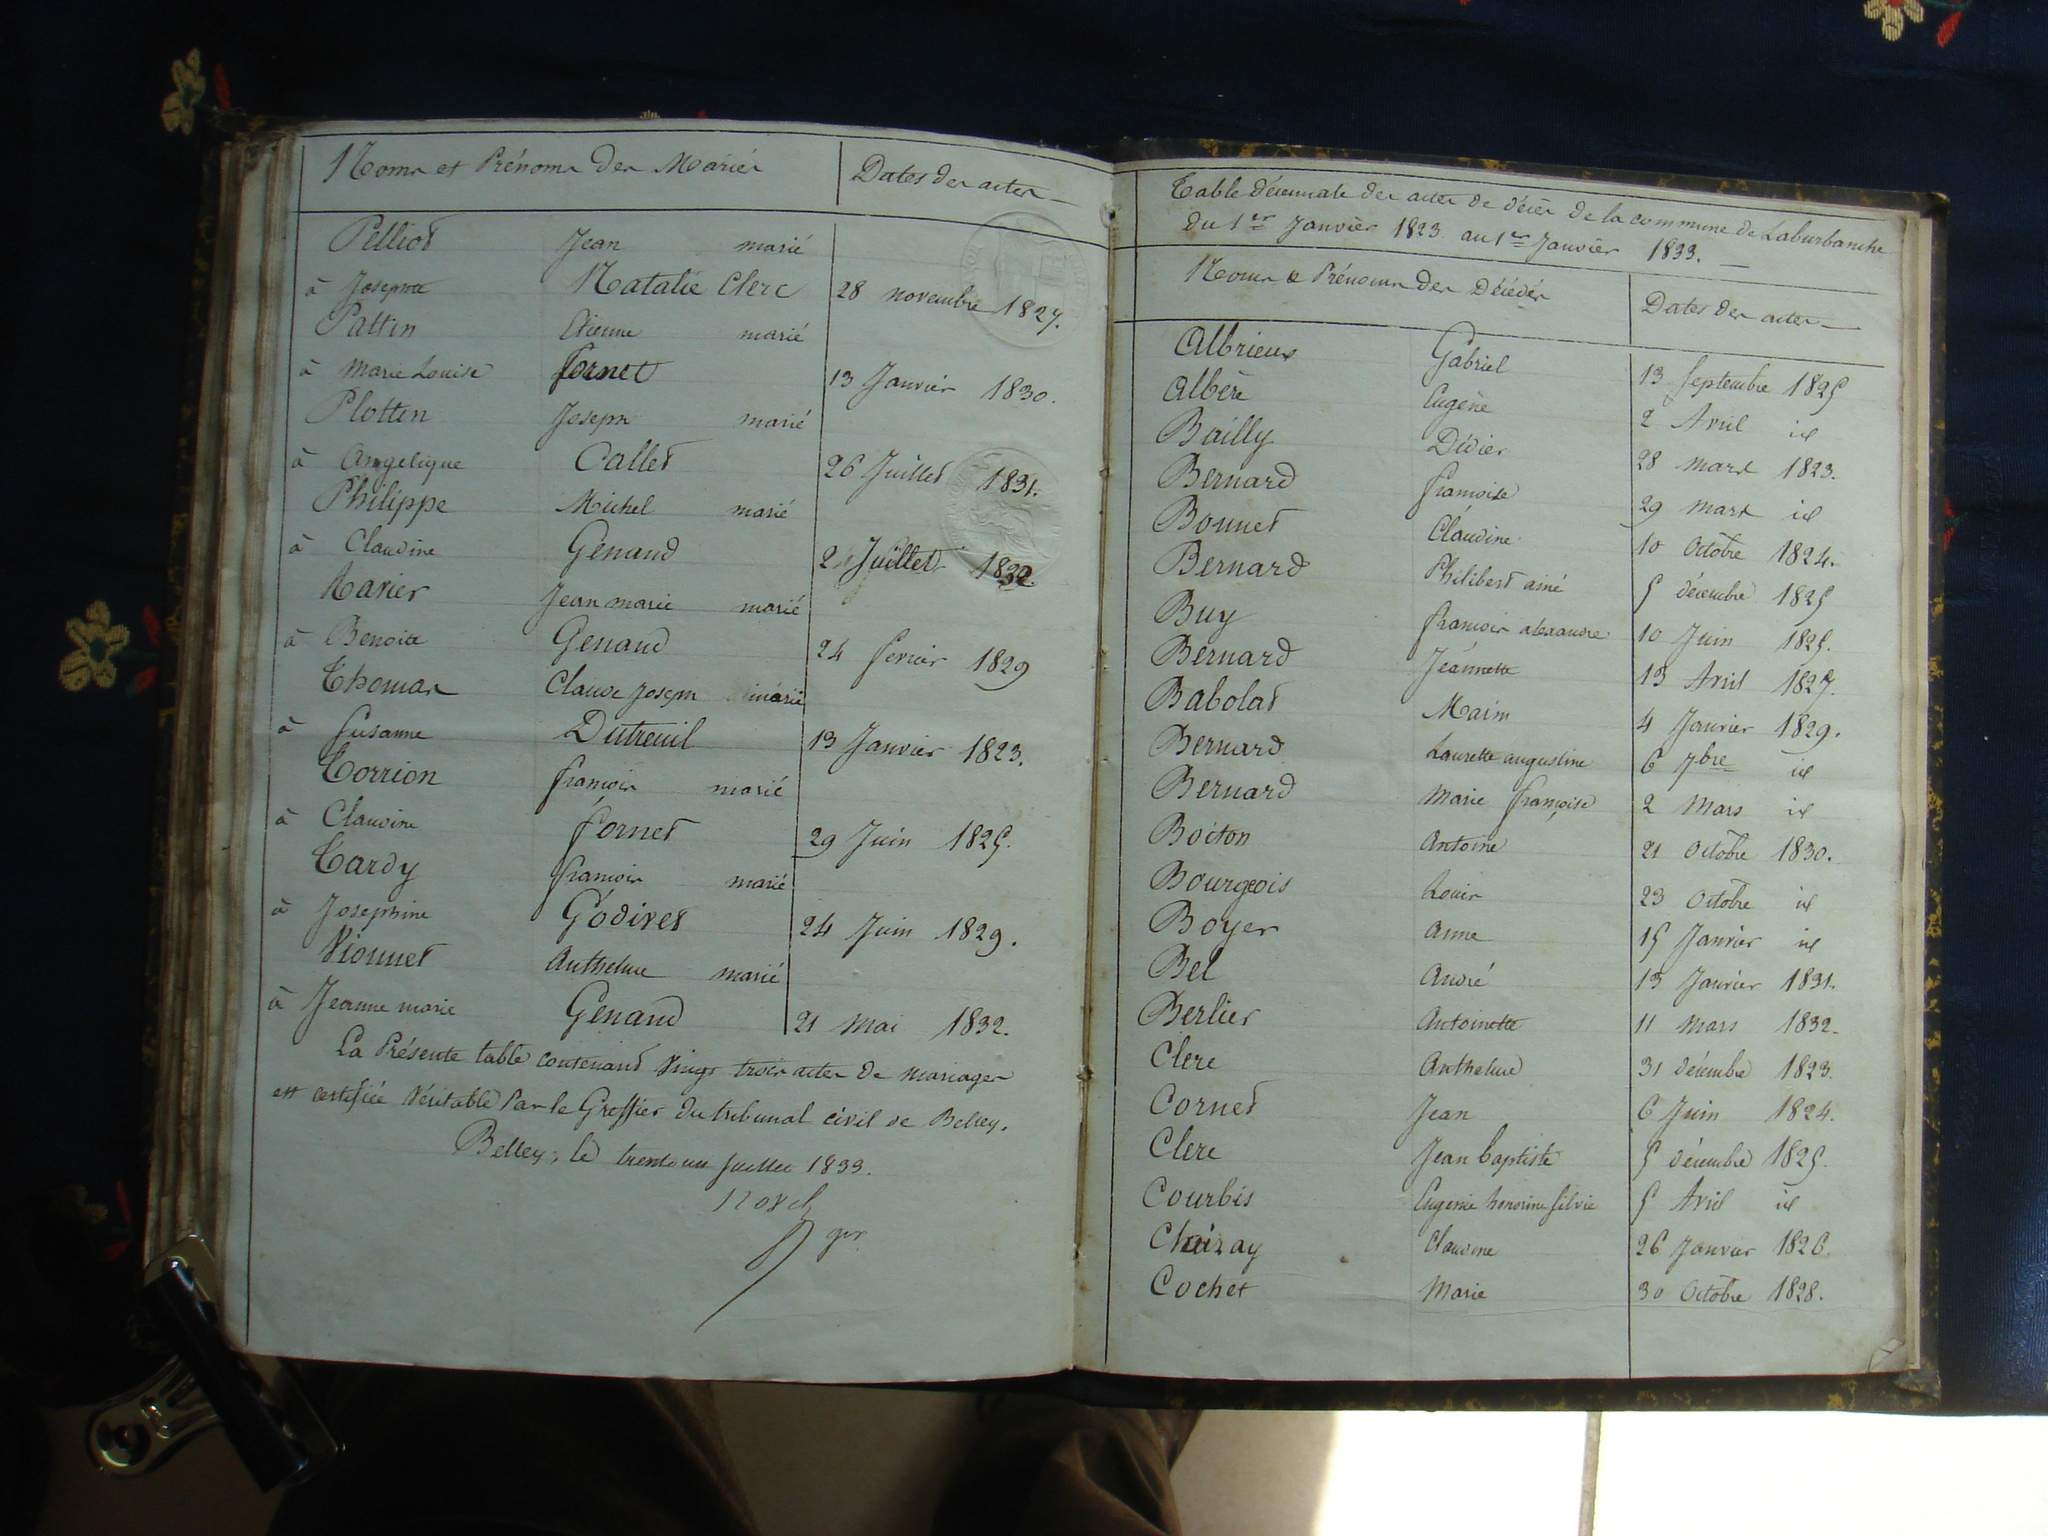 Noms et Prénoms des Mariés Dates des actes
Pelliot Jean marié
à Josephte Natalie Clerc 28 novembre 1827.
Pattin Etienne marié
à Marie Louise fornet 13 Janvier 1830.
Plottin Joseph marié
à Angelique Callet 26 Juillet 1831.
Philippe Michel marié
à Claudine Genaud 2 Juillet 1832.
Ravier Jean marie marié
à Benoite Genaud 24 fevrier 1829
Thomas Claude Joseph marié
à Susanne Dutreuil 13 Janvier 1823.
Torrion françois marié
à Claudine fornet 29 Juin 1825.
Tardy françois marié
à Josephine Godivet 24 Juin 1829.
Vionnet Anthelme marié
à Jeanne marie Genaud 21 Mai 1832.
La Présente table contenant Vingt trois actes de mariages
est certifiée Véritable Par le Greffier du tribunal civil de Belley.
Belley, le trente un Juillet 1833.
ger
Table décennale des actes de décès de la commune de Laburbanche
du 1er Janvier 1823 au 1er Janvier 1833.
Noms & Prénoms des Décédés Dates des actes
Albrieux Gabriel 13 Septembre 1825
Albère Eugène 2 Avril id
Bailly Didier 28 mars 1823.
Bernard françoise 29 mars id
Bonnet Claudine 10 Octobre 1824.
Bernard Philibert ainé 5 décembre 1825
Buy françois alexandre 10 Juin 1825.
Bernard Jeannette 13 Avril 1827.
Babolat 4 Janvier 1829.
Bernard Laurette augustine 6 7bre id
Bernard Marie françoise 2 Mars id
Boiton Antoine 21 Octobre 1830.
Bourgeois Louis 23 Octobre id
Boyer Anne 15 Janvier id
Bel André 13 Janvier 1831.
Berlier Antoinette 11 Mars 1832.
Clerc Anthelme 31 décembre 1823.
Cornet Jean 6 Juin 1824.
Clerc Jean baptiste 5 décembre 1825.
Courbis Eugenie honorine Silvie 5 Avril id
Choizay Claudine 26 Janvier 1826.
Cochet Marie 30 Octobre 1828.